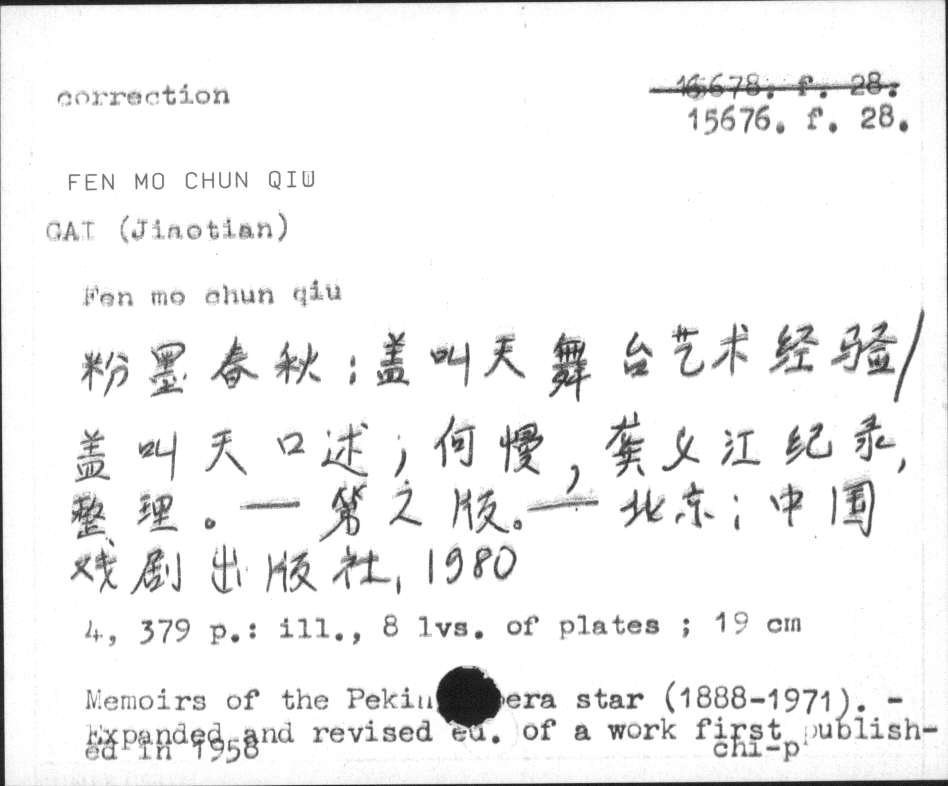 correction
16678. f. 28.
15676. f. 28.
FEN MO CHUN QIU
GAI (Jiaotian)
Fen mo chun qiu
粉墨春秋:盖叫天舞台艺术经验/
盖叫天口述;何慢,龚义江纪录,
整理。—第之版。—北京:中国
戏剧出版社,1980
4, 379 p.: ill., 8 lvs. of plates ; 19 cm
Memoirs of the era star (1888-1971). -
Expanded and revised ed. of a work first publish-
ed in 1958
chi-p